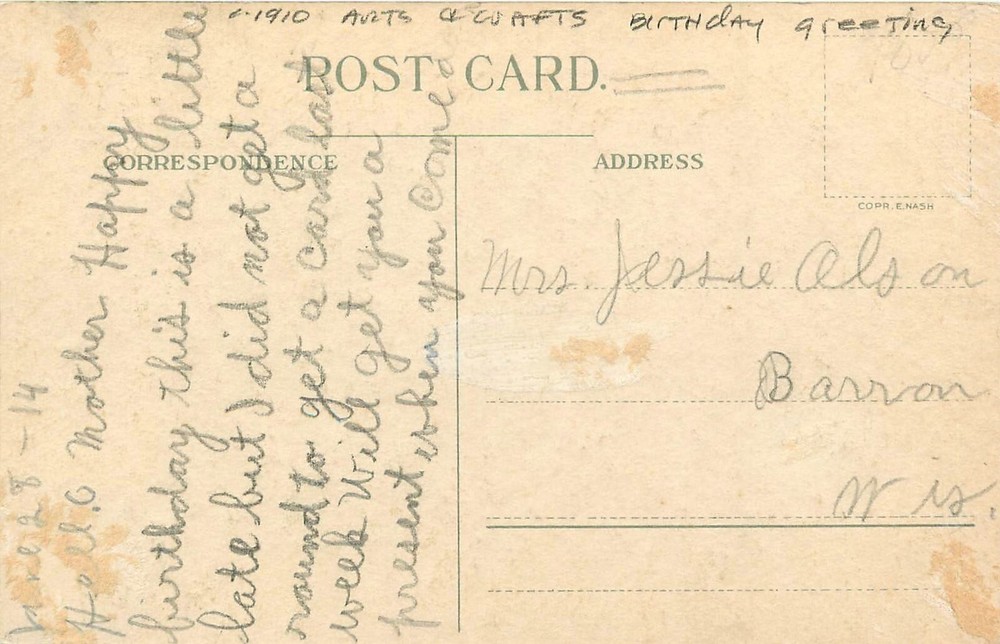 c-1910 ARTS & CRAFTS BIRTHday greeting
POST CARD.
CORRESPONDENCE
ADDRESS
COPR. E. NASH
28-14
Hello Mother Happy
birthday this is a little
late but I did not get a
round to get a card last
week Will get you a
present when you Come
Mrs. Jessie Olson
Barron
Wis.